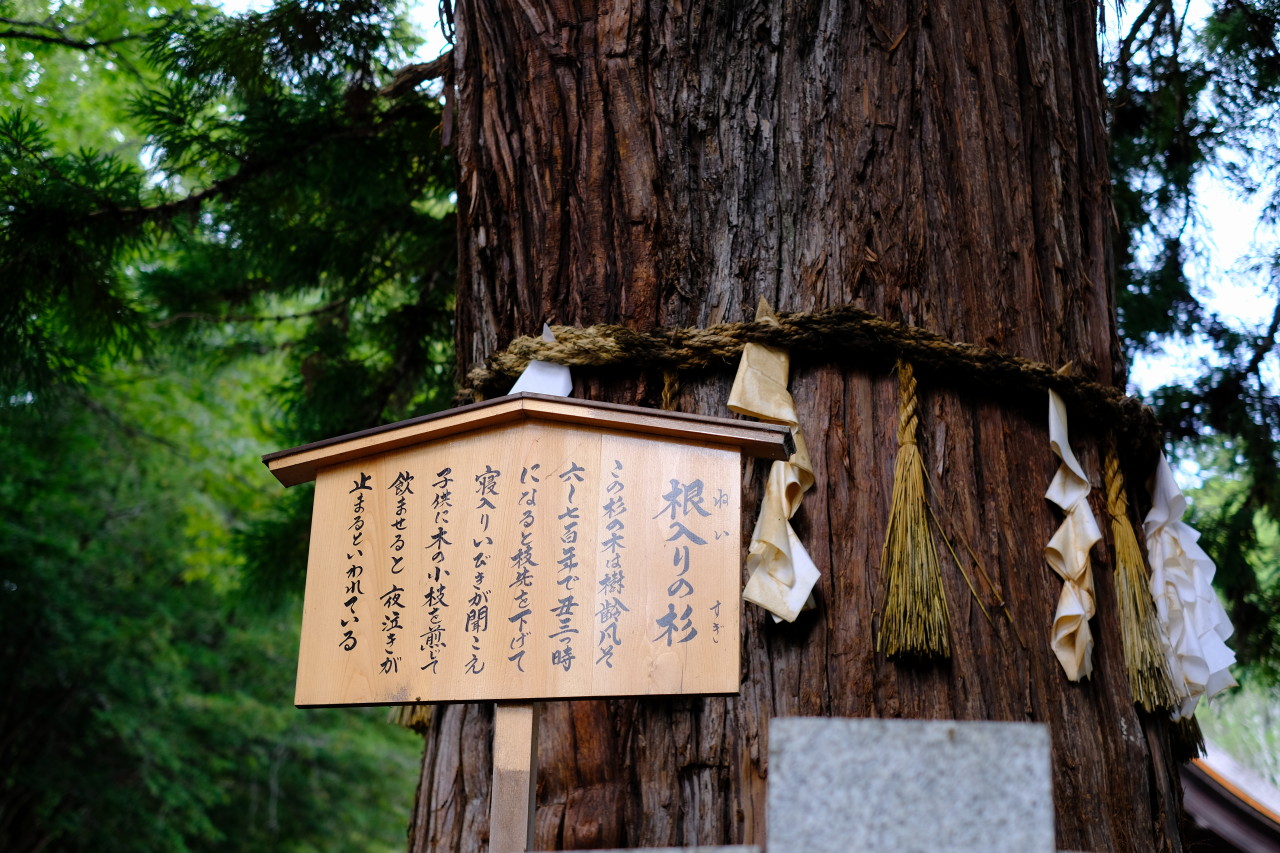 根入りの杉
ねい すぎ
この杉の木は樹齢凡そ
六〜七百年で丑三つ時
になると枝先を下げて
寝入りいびきが聞こえ
子供に木の小枝を煎じて
飲ませると 夜泣きが
止まるといわれている